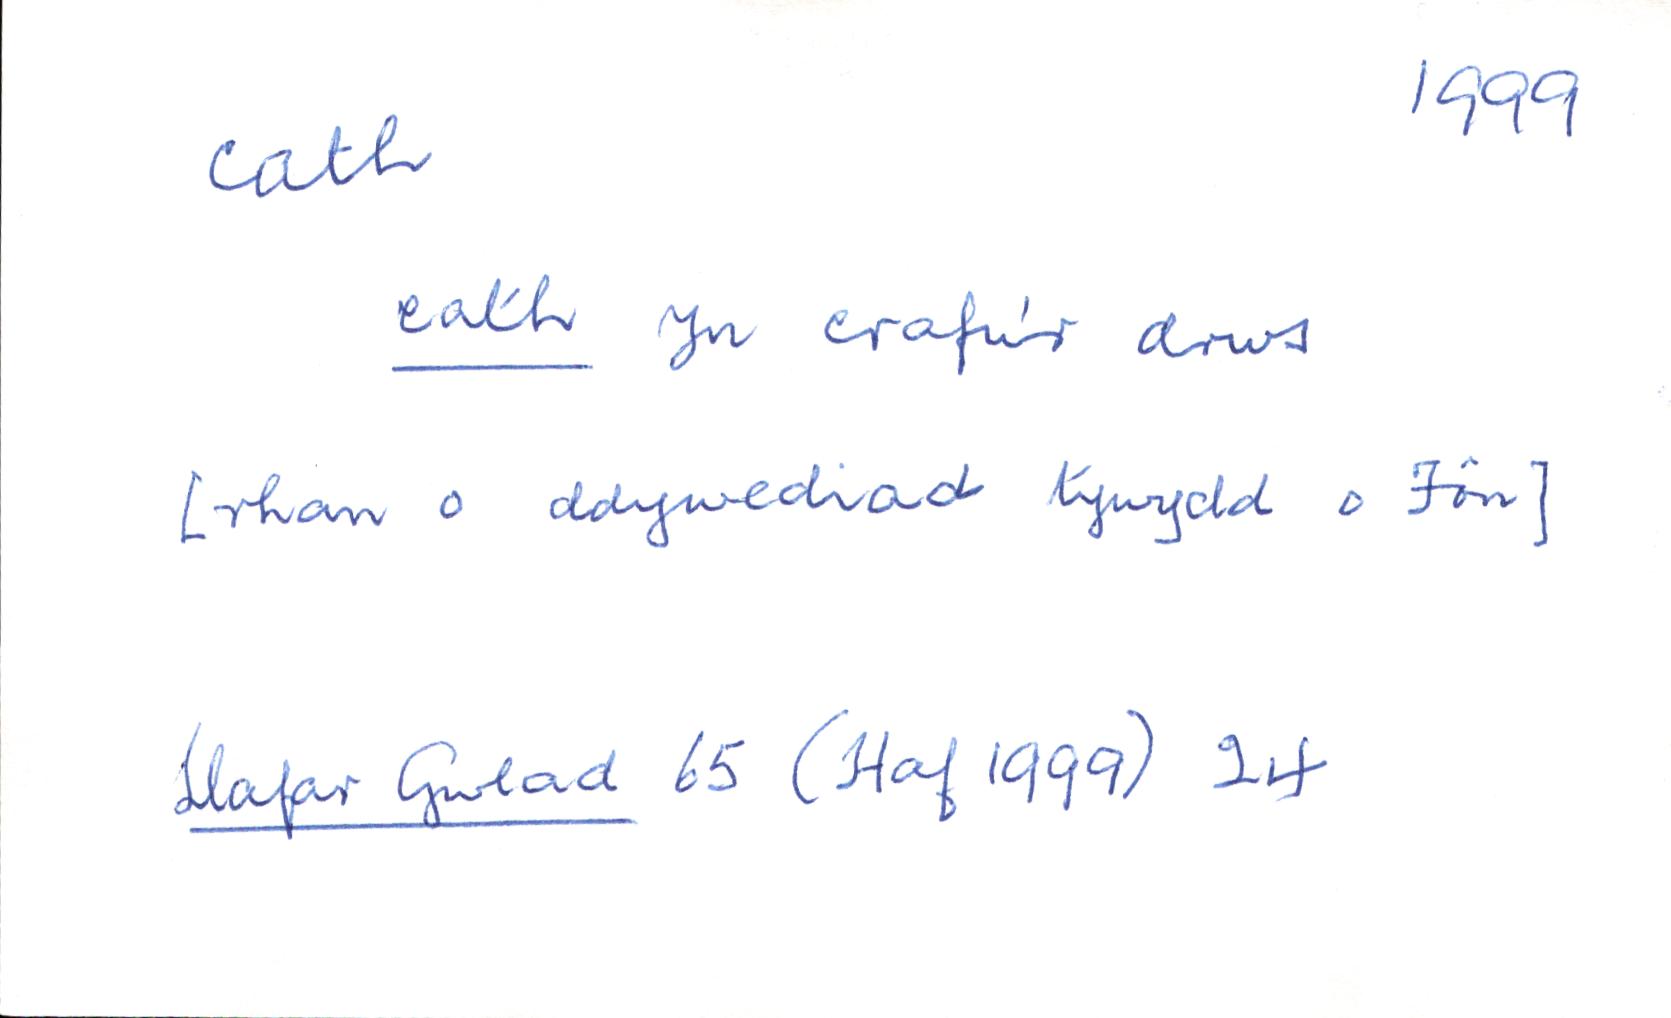 1999
cath
cath yn crafu'r drws
[rhan o ddywediad tywydd o Fôn]
Llafar Gwlad 65 (Haf 1999) 24